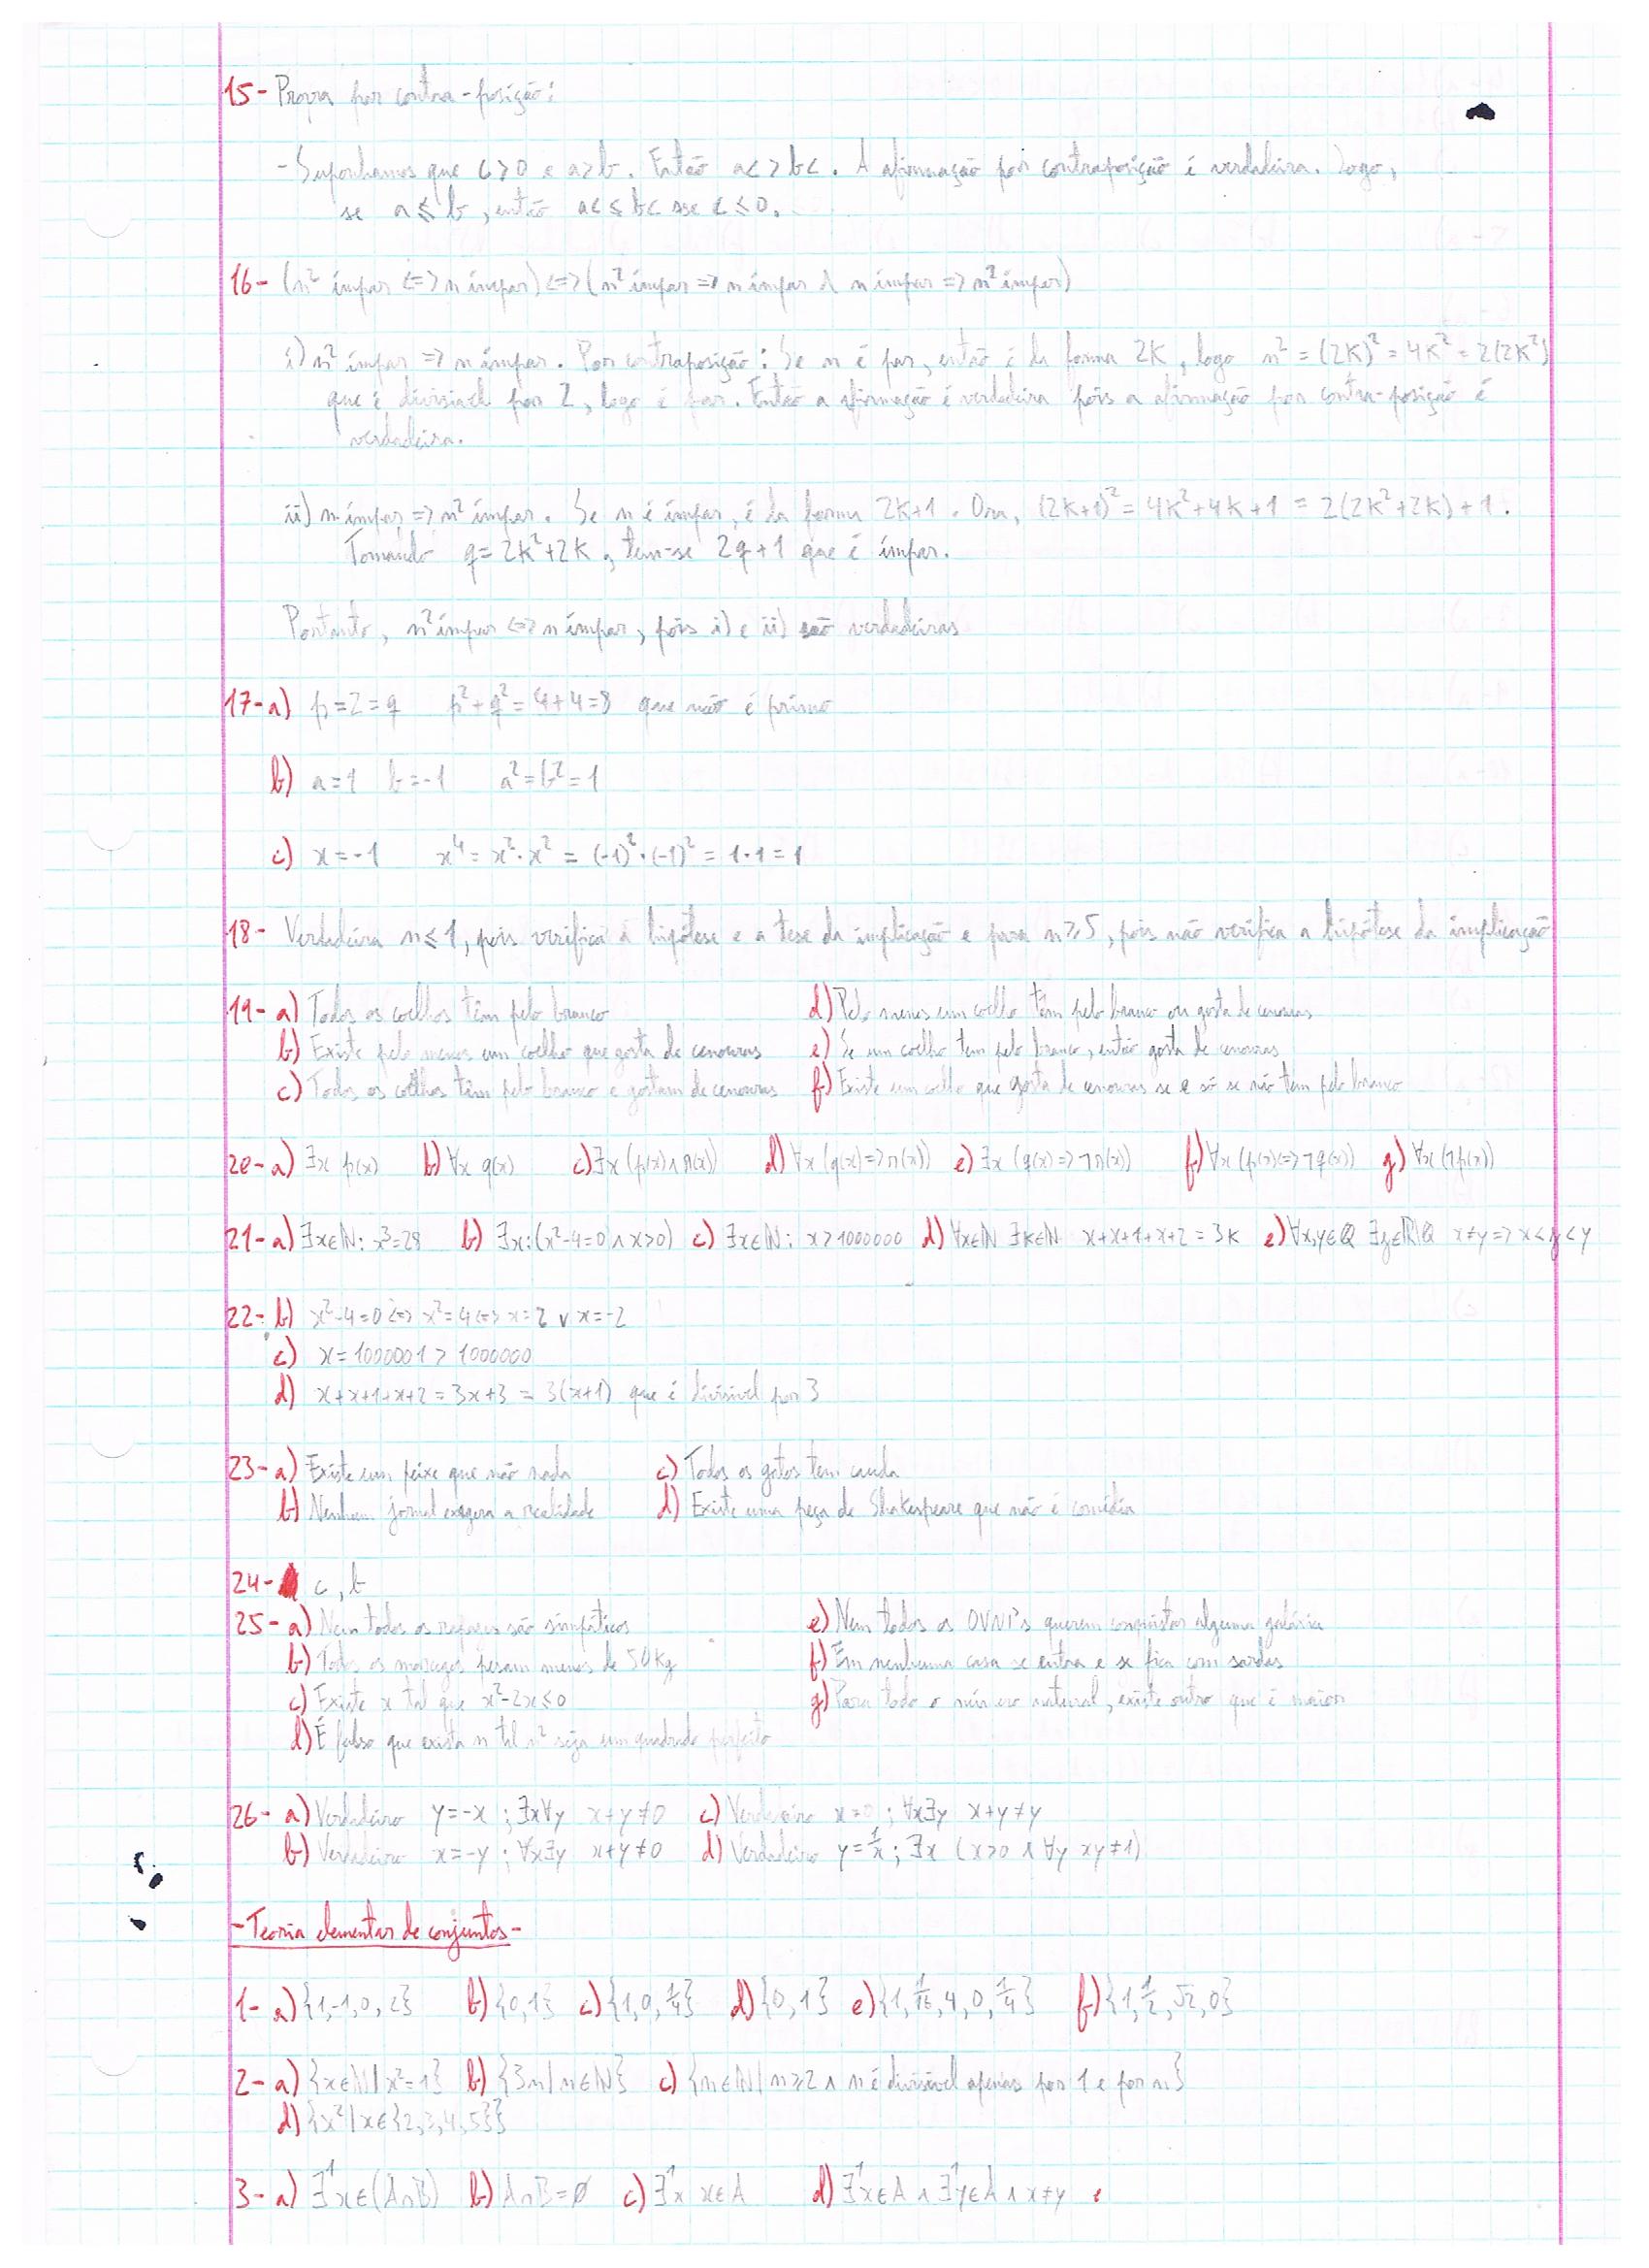 15- Prova por contra-posição:
- Suponhamos que c>0 e a>b. Então ac>bc. A afirmação por contraposição é verdadeira. Logo,
se a≤b, então ac≤bc sse c≤0.
16- (n² ímpar <=> n ímpar) <=> (n² ímpar => n ímpar ∧ n ímpar => n² ímper)
i) n² ímpar => n ímpar. Por contraposição: Se n é par, então é da forma 2K, logo n² = (2K)² = 4K² = 2(2K²)
que é divisível por 2, logo é par. Então a afirmação é verdadeira pois a afirmação por contra-posição é
verdadeira.
ii) n ímpar => n² ímpar. Se n é ímpar, é da forma 2K+1. Ora, (2K+1)² = 4K²+4K+1 = 2(2K²+2K)+1.
Tomando q=2K²+2K, tem-se 2q+1 que é ímpar.
Portanto, n² ímpar <=> n ímpar, pois i) e ii) são verdadeiras
17-a) p=2=q p²+q²=4+4=8 que não é primo
b) a=1 b=-1 a²=b²=1
c) x=-1 x⁴=x²·x² = (-1)²·(-1)² = 1·1=1
18- Verdadeira n≤1, pois verifica a hipótese e a tese da implicação e para n≥5, pois não verifica a hipótese da implicação
19- a) Todos os coelhos têm pelo branco d) Pelo menos um coelho têm pelo branco ou gosta de cenouras
b) Existe pelo menos um coelho que gosta de cenouras e) Se um coelho tem pelo branco, então gosta de cenouras
c) Todos os coelhos têm pelo branco e gostam de cenouras f) Existe um coelho que gosta de cenouras se e só se não tem pelo branco
20-a) ∃x p(x) b) ∀x q(x) c) ∃x (p(x)∧r(x)) d) ∀x (q(x)=>r(x)) e) ∃x (q(x)=>¬r(x)) f) ∀x (p(x)<=>¬q(x)) g) ∀x(¬p(x))
21-a) ∃x∈ℕ: x³=28 b) ∃x:(x²-4=0∧x>0) c) ∃x∈ℕ: x>1000000 d) ∀x∈ℕ ∃k∈ℕ x+x+1+x+2=3k e) ∀x,y∈ℚ ∃z∈ℝ\ℚ x≠y=>x<z<y
22- b) x²-4=0<=>x²=4<=>x=2 ∨ x=-2
c) x=1000001>1000000
d) x+x+1+x+2=3x+3=3(x+1) que é divisível por 3
23- a) Existe um peixe que não nada c) Todos os gatos tem cauda
b) Nenhum jornal exagera a realidade d) Existe uma peça de Shakespeare que não é comédia
24- c, b
25- a) Nem todos os rapazes são simpáticos e) Nem todos os OVNI's querem conquistar alguma galáxia
b) Todos os morcegos pesam menos de 50Kg f) Em nenhuma casa se entra e se fica com sardas
c) Existe x tal que x²-2x≤0 g) Para todo o número natural, existe outro que é maior
d) É falso que exista n tal n² seja um quadrado perfeito
26- a) Verdadeiro y=-x; ∃x∀y x+y≠0 c) Verdadeiro x=0; ∀x∃y x+y≠y
b) Verdadeiro x=-y; ∀x∃y x+y≠0 d) Verdadeiro y=1/x; ∃x (x>0 ∧ ∀y xy≠1)
-Teoria elementar de conjuntos-
1- a) {1,-1,0,2} b) {0,1} c) {1,0,1/4} d) {0,1} e) {1,1/16,4,0,1/4} f) {1,1/2,√2,0}
2- a) {x∈ℕ|x²=1} b) {3n|n∈ℕ} c) {n∈ℕ|n≥2 ∧ n é divisível apenas por 1 e por n}
d) {x²|x∈{2,3,4,5}}
3- a) ∃¹x∈(A∩B) b) A∩B=∅ c) ∃¹x x∈A d) ∃¹x∈A ∧ ∃¹y∈A ∧ x≠y